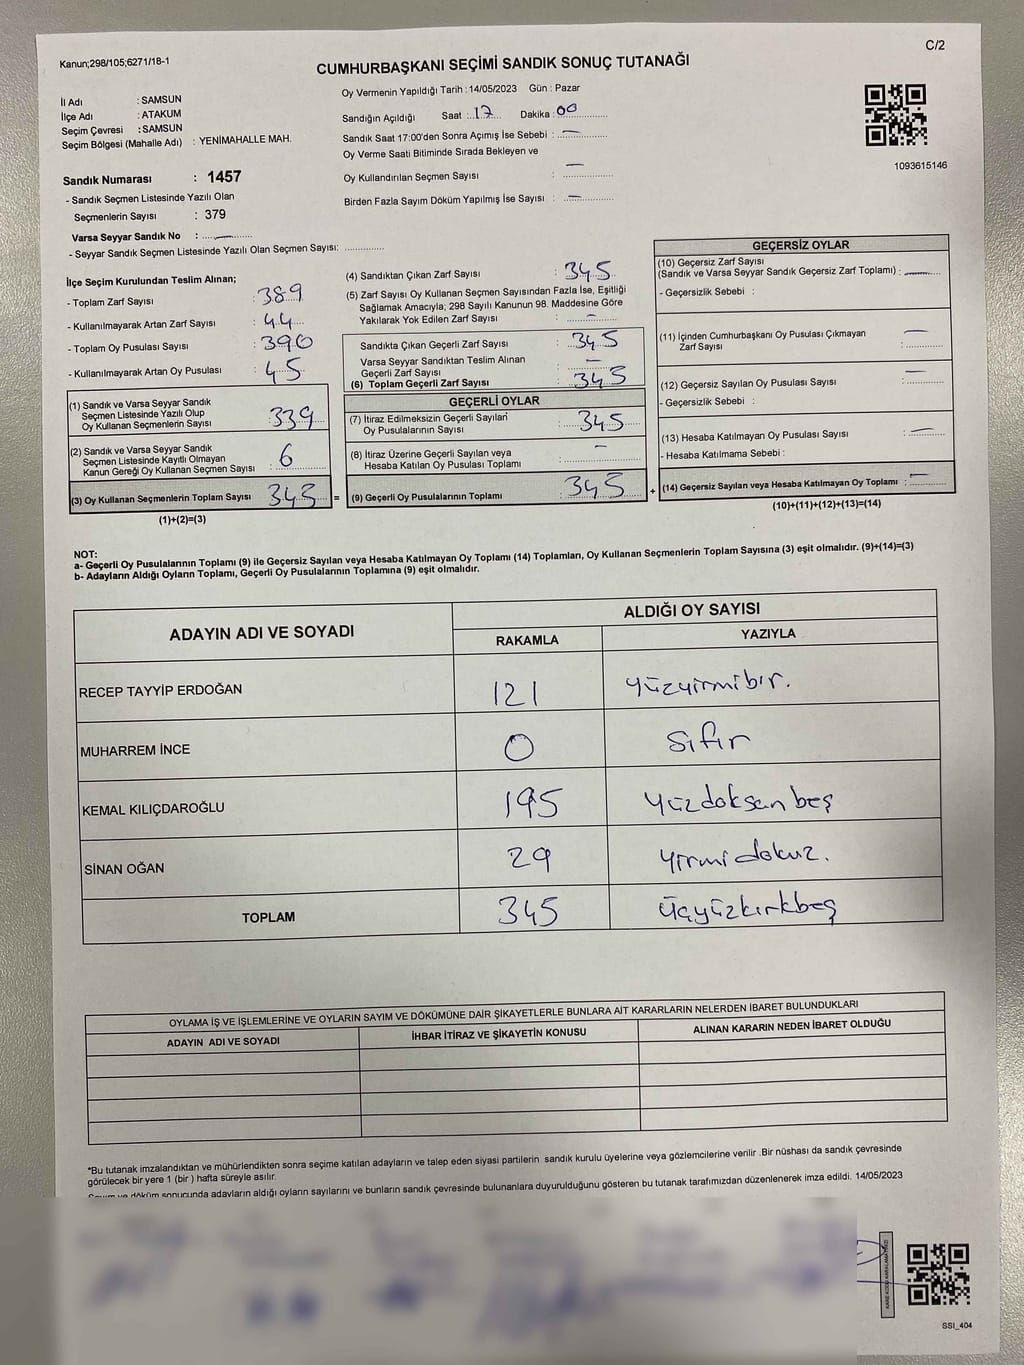 C/2
Kanun;298/105;6271/18-1
CUMHURBAŞKANI SEÇİMİ SANDIK SONUÇ TUTANAĞI
İl Adı : SAMSUN
İlçe Adı : ATAKUM
Seçim Çevresi : SAMSUN
Seçim Bölgesi (Mahalle Adı) : YENİMAHALLE MAH.
Oy Vermenin Yapıldığı Tarih : 14/05/2023 Gün : Pazar
Sandığın Açıldığı Saat : 17 Dakika : 00
Sandık Saat 17:00'den Sonra Açımış İse Sebebi : —
Oy Verme Saati Bitiminde Sırada Bekleyen ve
Oy Kullandırılan Seçmen Sayısı : —
Birden Fazla Sayım Döküm Yapılmış İse Sayısı : —
1093615146
Sandık Numarası : 1457
- Sandık Seçmen Listesinde Yazılı Olan
Seçmenlerin Sayısı : 379
Varsa Seyyar Sandık No : —
- Seyyar Sandık Seçmen Listesinde Yazılı Olan Seçmen Sayısı: ..............
İlçe Seçim Kurulundan Teslim Alınan;
- Toplam Zarf Sayısı : 389
- Kullanılmayarak Artan Zarf Sayısı : 44
- Toplam Oy Pusulası Sayısı : 390
- Kullanılmayarak Artan Oy Pusulası : 45
(1) Sandık ve Varsa Seyyar Sandık
Seçmen Listesinde Yazılı Olup
Oy Kullanan Seçmenlerin Sayısı : 339
(2) Sandık ve Varsa Seyyar Sandık
Seçmen Listesinde Kayıtlı Olmayan
Kanun Gereği Oy Kullanan Seçmen Sayısı : 6
(3) Oy Kullanan Seçmenlerin Toplam Sayısı : 345 =
(1)+(2)=(3)
(4) Sandıktan Çıkan Zarf Sayısı : 345
(5) Zarf Sayısı Oy Kullanan Seçmen Sayısından Fazla İse, Eşitliği
Sağlamak Amacıyla; 298 Sayılı Kanunun 98. Maddesine Göre
Yakılarak Yok Edilen Zarf Sayısı : —
Sandıkta Çıkan Geçerli Zarf Sayısı : 345
Varsa Seyyar Sandıktan Teslim Alınan
Geçerli Zarf Sayısı : —
(6) Toplam Geçerli Zarf Sayısı : 345
GEÇERLİ OYLAR
(7) İtiraz Edilmeksizin Geçerli Sayılan
Oy Pusulalarının Sayısı : 345
(8) İtiraz Üzerine Geçerli Sayılan veya
Hesaba Katılan Oy Pusulası Toplamı : —
(9) Geçerli Oy Pusulalarının Toplamı : 345 +
GEÇERSİZ OYLAR
(10) Geçersiz Zarf Sayısı
(Sandık ve Varsa Seyyar Sandık Geçersiz Zarf Toplamı) : —
- Geçersizlik Sebebi :
(11) İçinden Cumhurbaşkanı Oy Pusulası Çıkmayan
Zarf Sayısı : —
(12) Geçersiz Sayılan Oy Pusulası Sayısı : —
- Geçersizlik Sebebi :
(13) Hesaba Katılmayan Oy Pusulası Sayısı : —
- Hesaba Katılmama Sebebi :
(14) Geçersiz Sayılan veya Hesaba Katılmayan Oy Toplamı : —
(10)+(11)+(12)+(13)=(14)
NOT:
a- Geçerli Oy Pusulalarının Toplamı (9) ile Geçersiz Sayılan veya Hesaba Katılmayan Oy Toplamı (14) Toplamları, Oy Kullanan Seçmenlerin Toplam Sayısına (3) eşit olmalıdır. (9)+(14)=(3)
b- Adayların Aldığı Oyların Toplamı, Geçerli Oy Pusulalarının Toplamına (9) eşit olmalıdır.
ADAYIN ADI VE SOYADI ALDIĞI OY SAYISI
RAKAMLA YAZIYLA
RECEP TAYYİP ERDOĞAN 121 yüzyirmibir.
MUHARREM İNCE 0 sıfır
KEMAL KILIÇDAROĞLU 195 yüzdoksanbeş
SİNAN OĞAN 29 yirmidokuz.
TOPLAM 345 üçyüzkırkbeş
OYLAMA İŞ VE İŞLEMLERİNE VE OYLARIN SAYIM VE DÖKÜMÜNE DAİR ŞİKAYETLERLE BUNLARA AİT KARARLARIN NELERDEN İBARET BULUNDUKLARI
ADAYIN ADI VE SOYADI İHBAR İTİRAZ VE ŞİKAYETİN KONUSU ALINAN KARARIN NEDEN İBARET OLDUĞU
*Bu tutanak imzalandıktan ve mühürlendikten sonra seçime katılan adayların ve talep eden siyasi partilerin sandık kurulu üyelerine veya gözlemcilerine verilir .Bir nüshası da sandık çevresinde
görülecek bir yere 1 (bir ) hafta süreyle asılır.
Sayım ve döküm sonucunda adayların aldığı oyların sayılarını ve bunların sandık çevresinde bulunanlara duyurulduğunu gösteren bu tutanak tarafımızdan düzenlenerek imza edildi. 14/05/2023
SSI_404